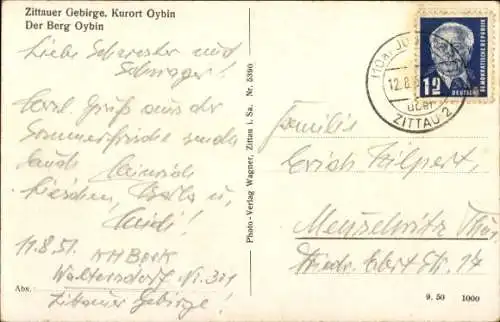 Zittauer Gebirge. Kurort Oybin
Der Berg Oybin
Liebe Schwester und
Schwager!
Herzl. Gruß aus der
Sommerfrische senden
Euch Heinrich
Lieschen,
Heidi!
11.8.51.
Waltersdorf Nr. 301
Abs. Zittauer Gebirge!
Photo-Verlag Wagner, Zittau i. Sa. Nr. 5390
12
DEUTSCHE
DEMOKRATISCHE REPUBLIK
(10a)
12.8.
über
ZITTAU 2
Familie
Erich Hilpert,
Meuselwitz Thür
Friedr. Ebert Str. 14
9. 50 1000